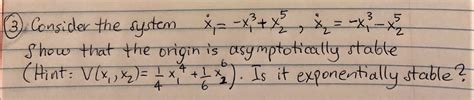 ③ Consider the system ẋ₁ = -x₁³ + x₂⁵ , ẋ₂ = -x₁³ - x₂⁵
Show that the origin is asymptotically stable
(Hint: V(x₁, x₂) = 1/4 x₁⁴ + 1/6 x₂⁶). Is it exponentially stable?